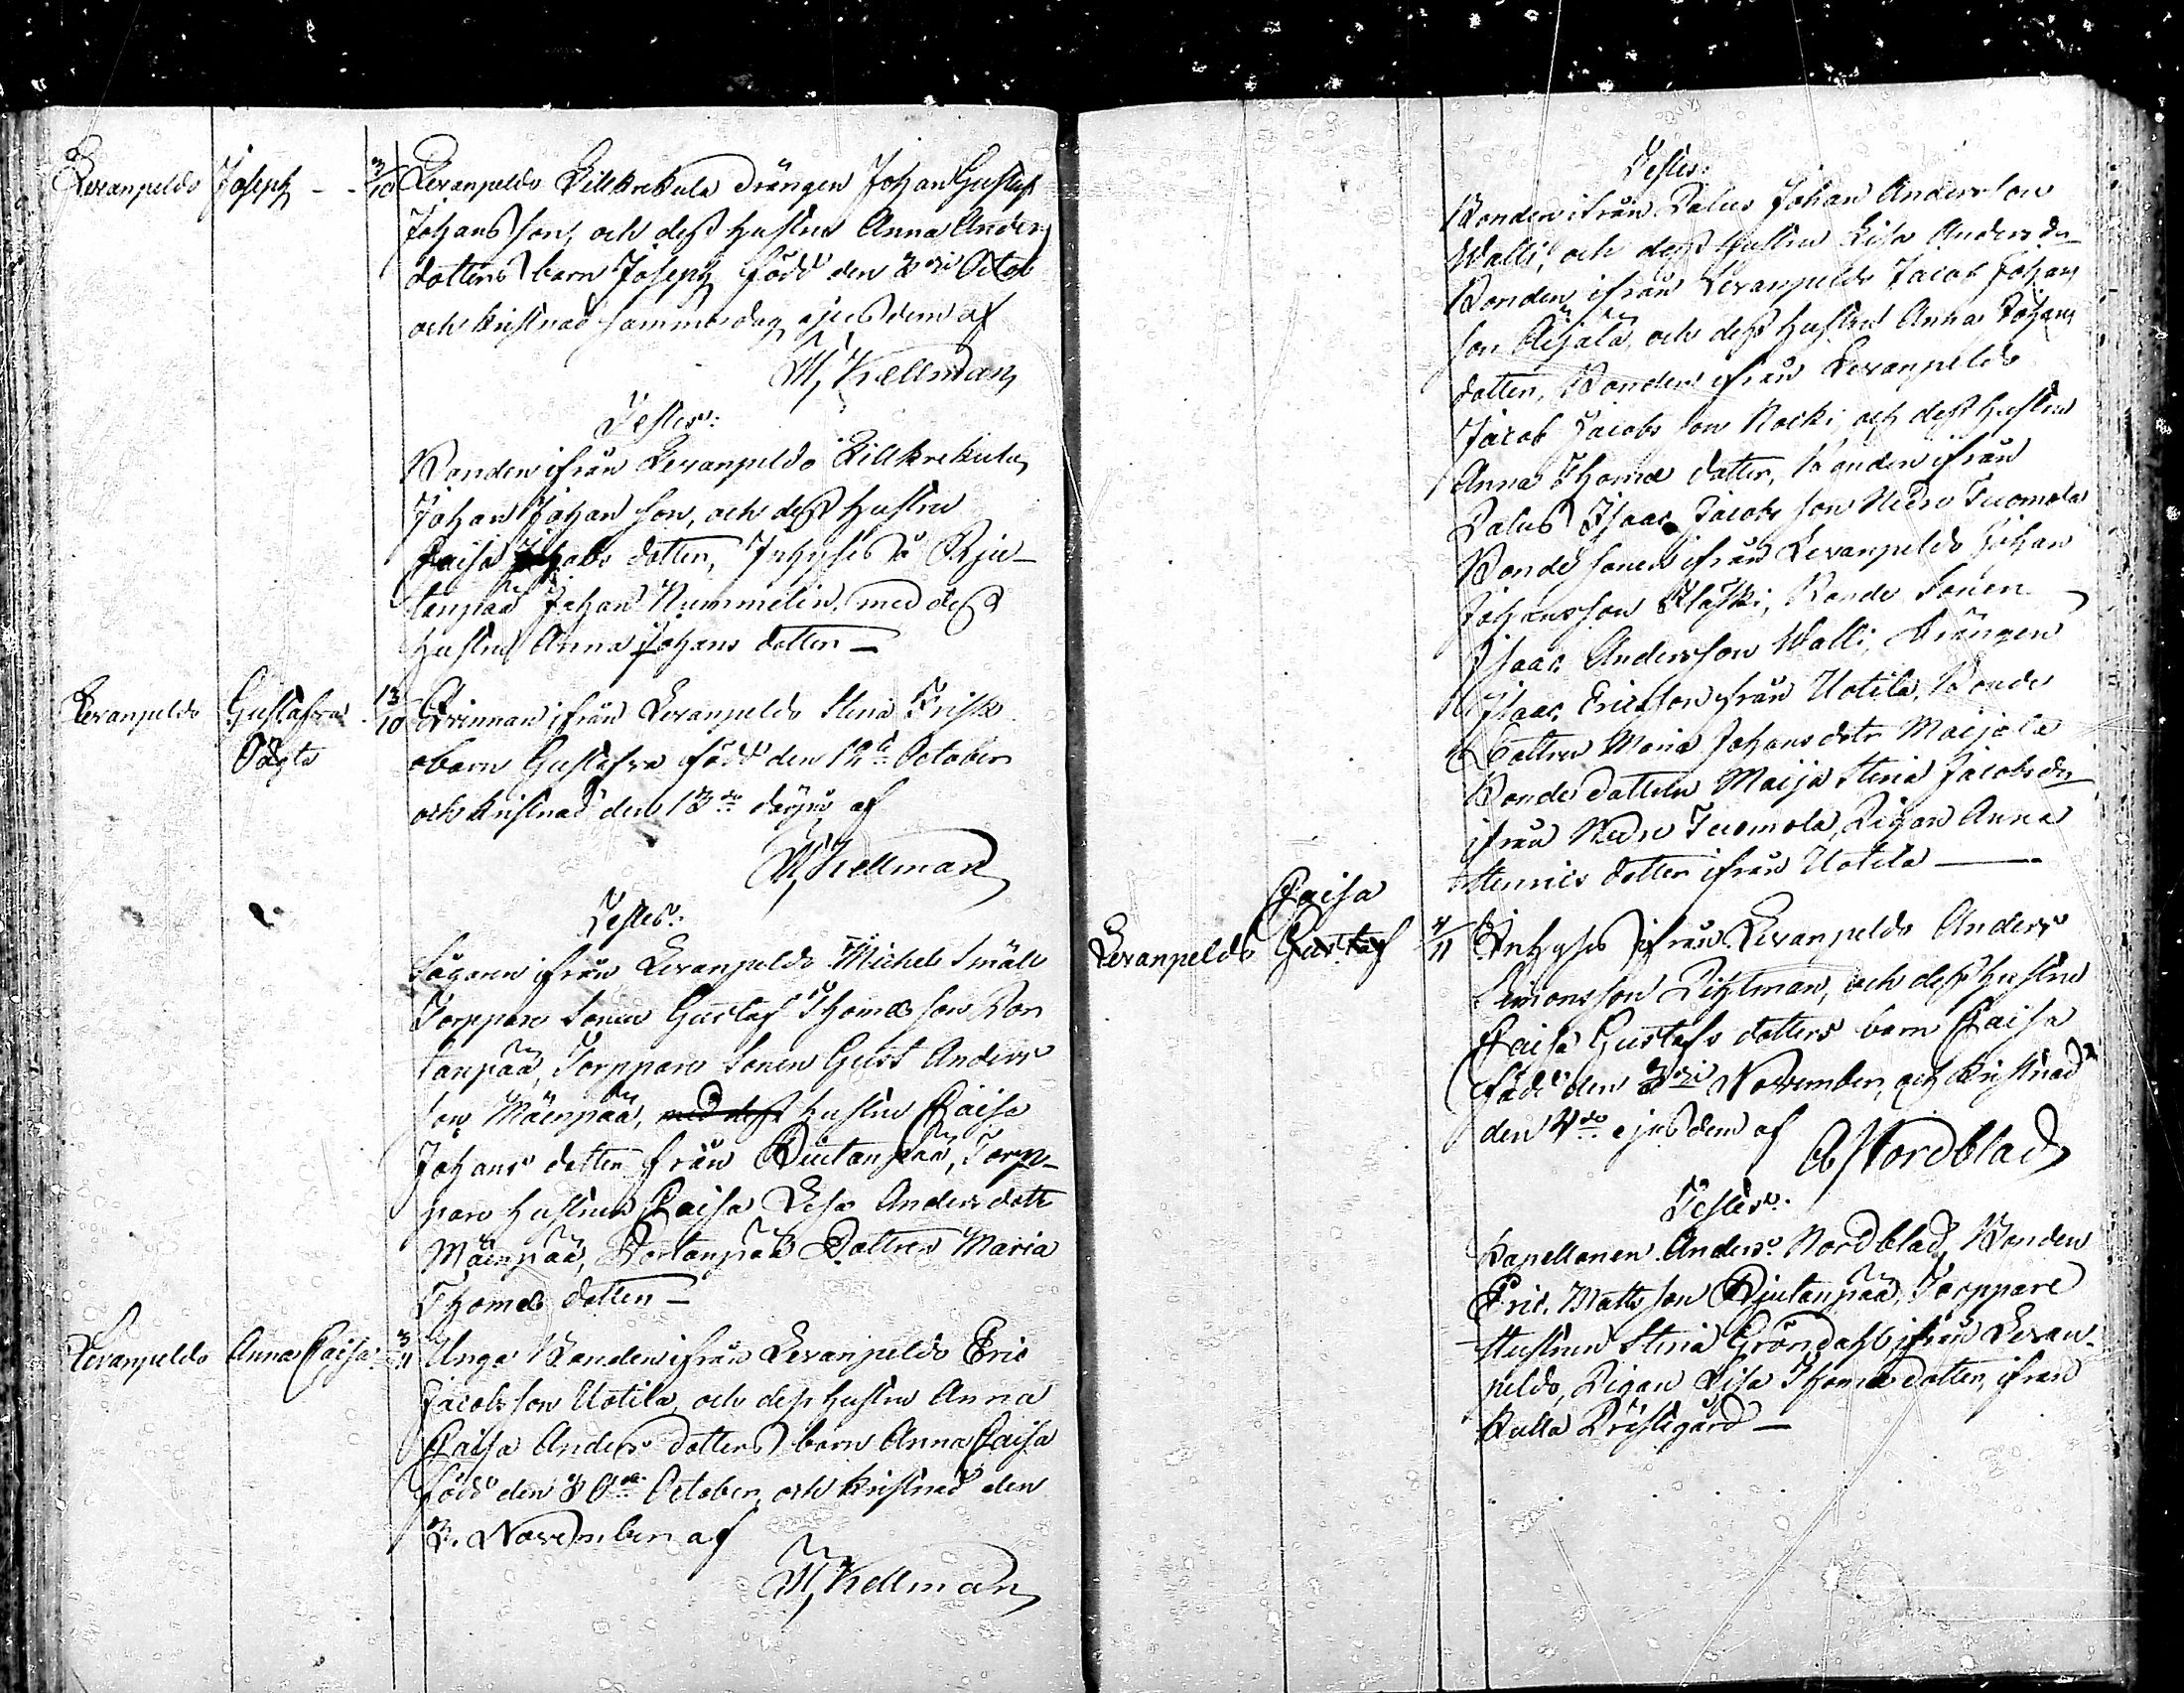 Levanpeldo Joseph - - 3/10 Levanpeldo Lillkrekula Drängen Johan Gustaf
Johansson, och dess hustru Anna Anders
dotters barn Joseph född den 3die Octob
och kristnad samma dag ejusdem af
M Hellman
Testes:
Bonden ifrån Levanpeldo Lillkrekula
Johan Johansson, och dess hustru
Caisa dotter, Inhyses å Rju-
tanpää Johan Nummelin, med dess
hustru Anna Johans dotter -
Levanpeldo Gustafva 13/10 Qvinnan ifrån Levanpeldo Stina Frisks
Oägta
obarn Gustafva född den 12te October
och kristnad den 13de af
M Hellman
Testes:
Sågaren ifrån Levanpeldo Michel Smäll
Torppare Sonen Gustaf Thomasson Por
tanpää, Torppare Sonen Gust Anders
son Mäenpää, med dess hustru Caisa
Johans dotter från Riutanpää, Torp-
pare hustrun Caisa Lisa Anders dotr
Mäenpää, Portanpää Dottren Maria
Thomæ dotter -
Levanpeldo Anna Caisa 3/11 Unga Bonden ifrån Levanpeldo Eric
Jacobsson Uotila, och dess hustru Anna
Caisa Anders dotters barn Anna Caisa
född den 30de October och kristnad den
3. November af
M Hellman
Testes:
Bonden ifrån Palus Johan Andersson
Walli, och dess hustru Lisa Anders dr
Bonden ifrån Levanpeldo Jacob Johans
son och dess hustru Anna Johans
dotter, Bonden ifrån Levanpeldo
Jacob Jacobsson Kocki, och dess hustru
Anna Thomæ dotter, Bonden ifrån
Palus Isaac Jacobsson Nedre Tuomola
Bonde sonen ifrån Levanpeldo Johan
Johansson Klaski, Bonde Sonen
Isaac Andersson Walli, Drängen
Isaac Ericsson från Uotila, Bonde
Dottren Maria Johans dotr Maijala
Bonde dottren Maija Stina Jacobs dr
ifrån Nedre Tuomola, Pigan Anna
Henrics dotter ifrån Uotila -
Caisa
Levanpeldo Gustaf 4/11 Inhyses ifrån Levanpeldo Anders
Simonsson och dess hustru
Caisa Gustafs dotters barn Caisa
född den 3die November, och kristnad
den 4de ejusdem af
A Nordblad
Testes:
Kapellanen Anders Nordblad, Bonden
Eric Mattsson Rjutanpää, Torppare
Hustrun Stina Gröndahl ifrån Levan-
peldo, Pigan Lisa Thomæ dotter, ifrån
Kulla Prästgård -